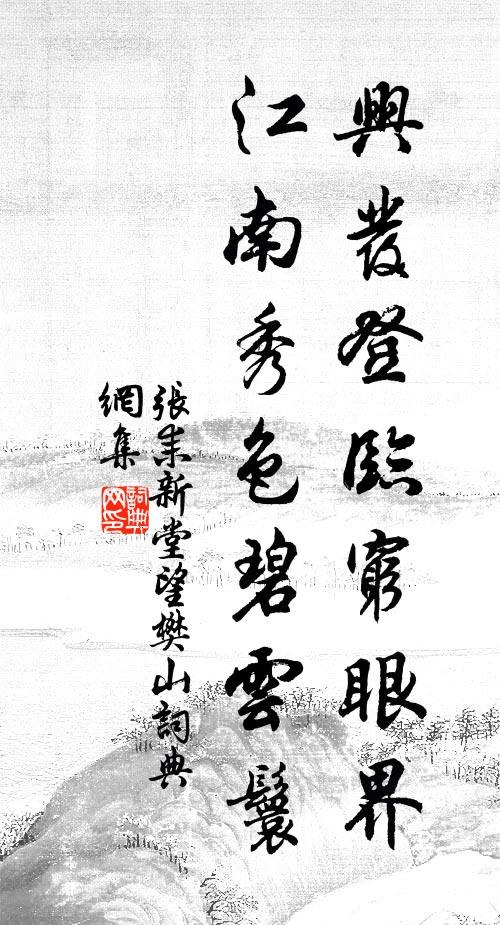 興發登臨窮眼界
江南秀色碧雲鬟
張耒新堂望樊山詞典
網集
詞典
网印